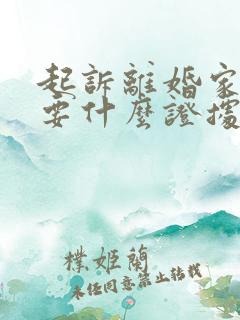 起訴離婚家
要什麼證據
樸姬蘭
未经同意禁止转载